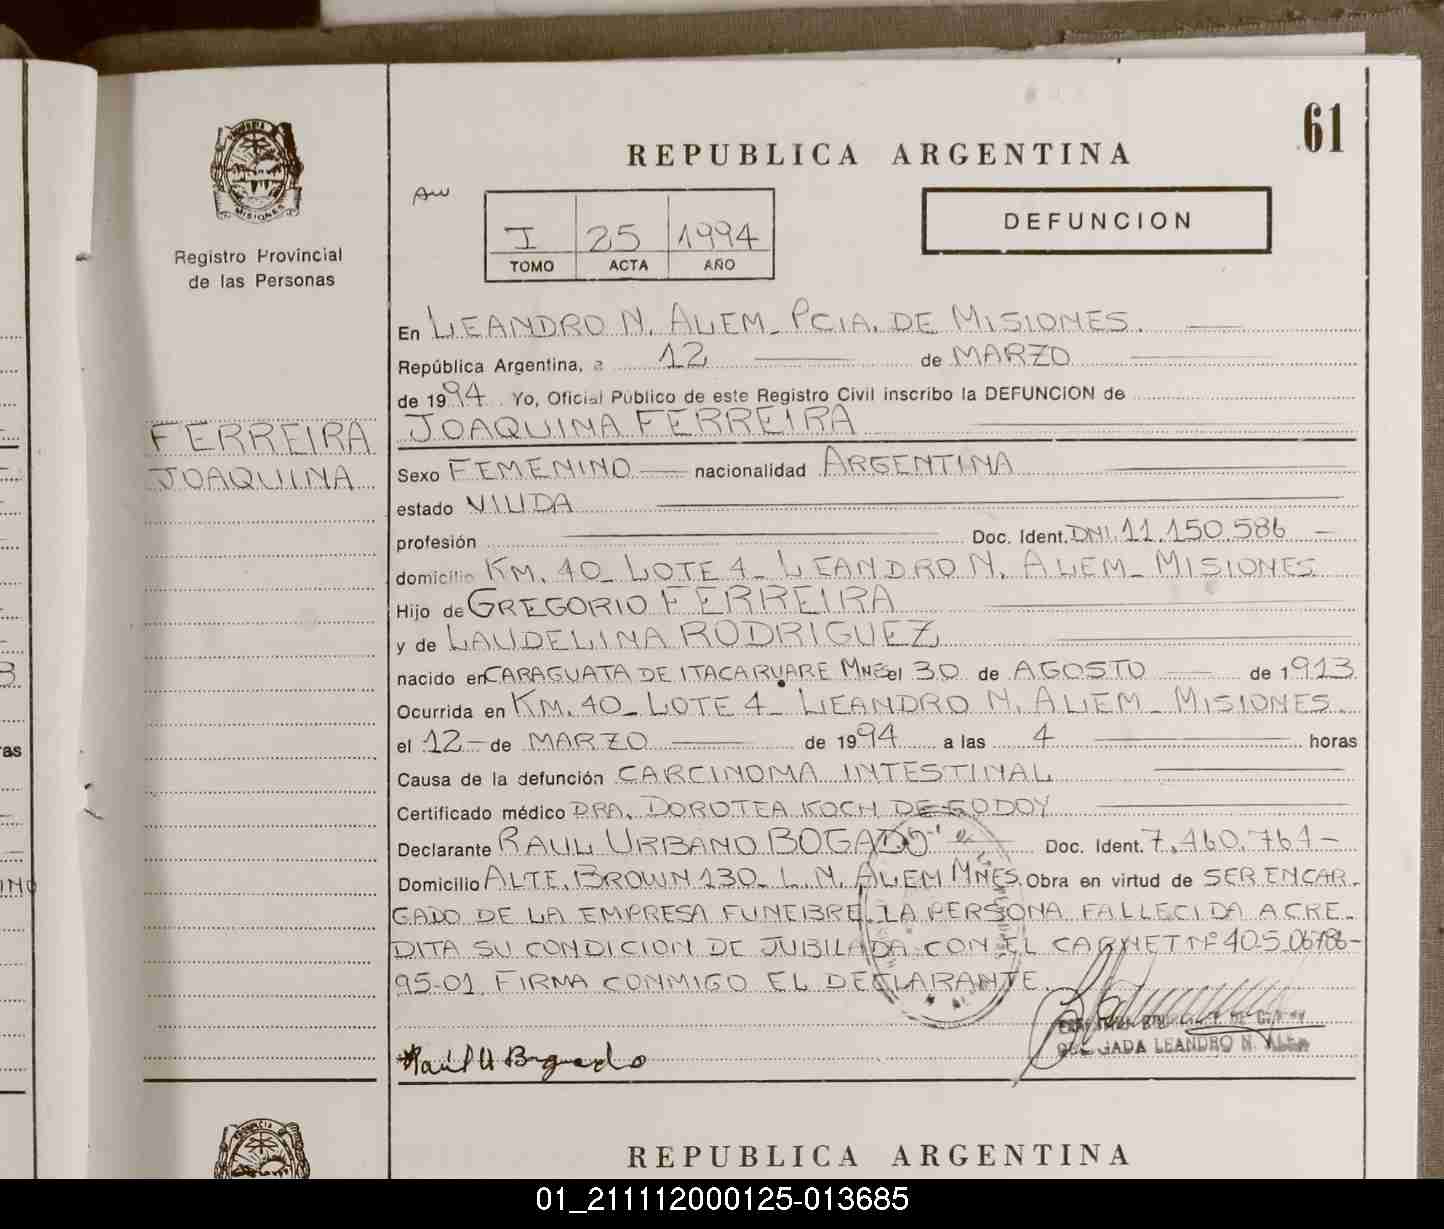 61
REPUBLICA ARGENTINA
PROVINCIA DE
MISIONES
Registro Provincial
de las Personas
I 25 1994
TOMO ACTA AÑO
DEFUNCION
En LEANDRO N. ALEM_ PCIA. DE MISIONES.
República Argentina, a 12 de MARZO
de 1994. Yo, Oficial Público de este Registro Civil inscribo la DEFUNCION de
FERREIRA
JOAQUINA
JOAQUINA FERREIRA
Sexo FEMENINO nacionalidad ARGENTINA
estado VIUDA
profesión Doc. Ident. DNI. 11.150.586 –
domicilio KM. 40_ LOTE 4_ LEANDRO N. ALEM_ MISIONES
Hijo de GREGORIO FERREIRA
y de LAUDELINA RODRIGUEZ
nacido en CARAGUATA DE ITACARUARE MNES el 30 de AGOSTO de 1913
Ocurrida en KM. 40_ LOTE 4_ LEANDRO N. ALEM_ MISIONES.
el 12 – de MARZO de 1994 a las 4 horas
Causa de la defunción CARCINOMA INTESTINAL
Certificado médico DRA. DOROTEA KOCH DE GODOY
Declarante RAUL URBANO BOGADO Doc. Ident. 7.460.764 –
Domicilio ALTE. BROWN 130_ L. N. ALEM MNES. Obra en virtud de SER ENCAR-
GADO DE LA EMPRESA FUNEBRE. LA PERSONA FALLECIDA ACRE-
DITA SU CONDICION DE JUBILADA CON EL CARNET Nº 40.5.06786-
95-01. FIRMA CONMIGO EL DECLARANTE.
Raúl U Bogado
LEANDRO N. ALEM
REPUBLICA ARGENTINA
01_211112000125-013685